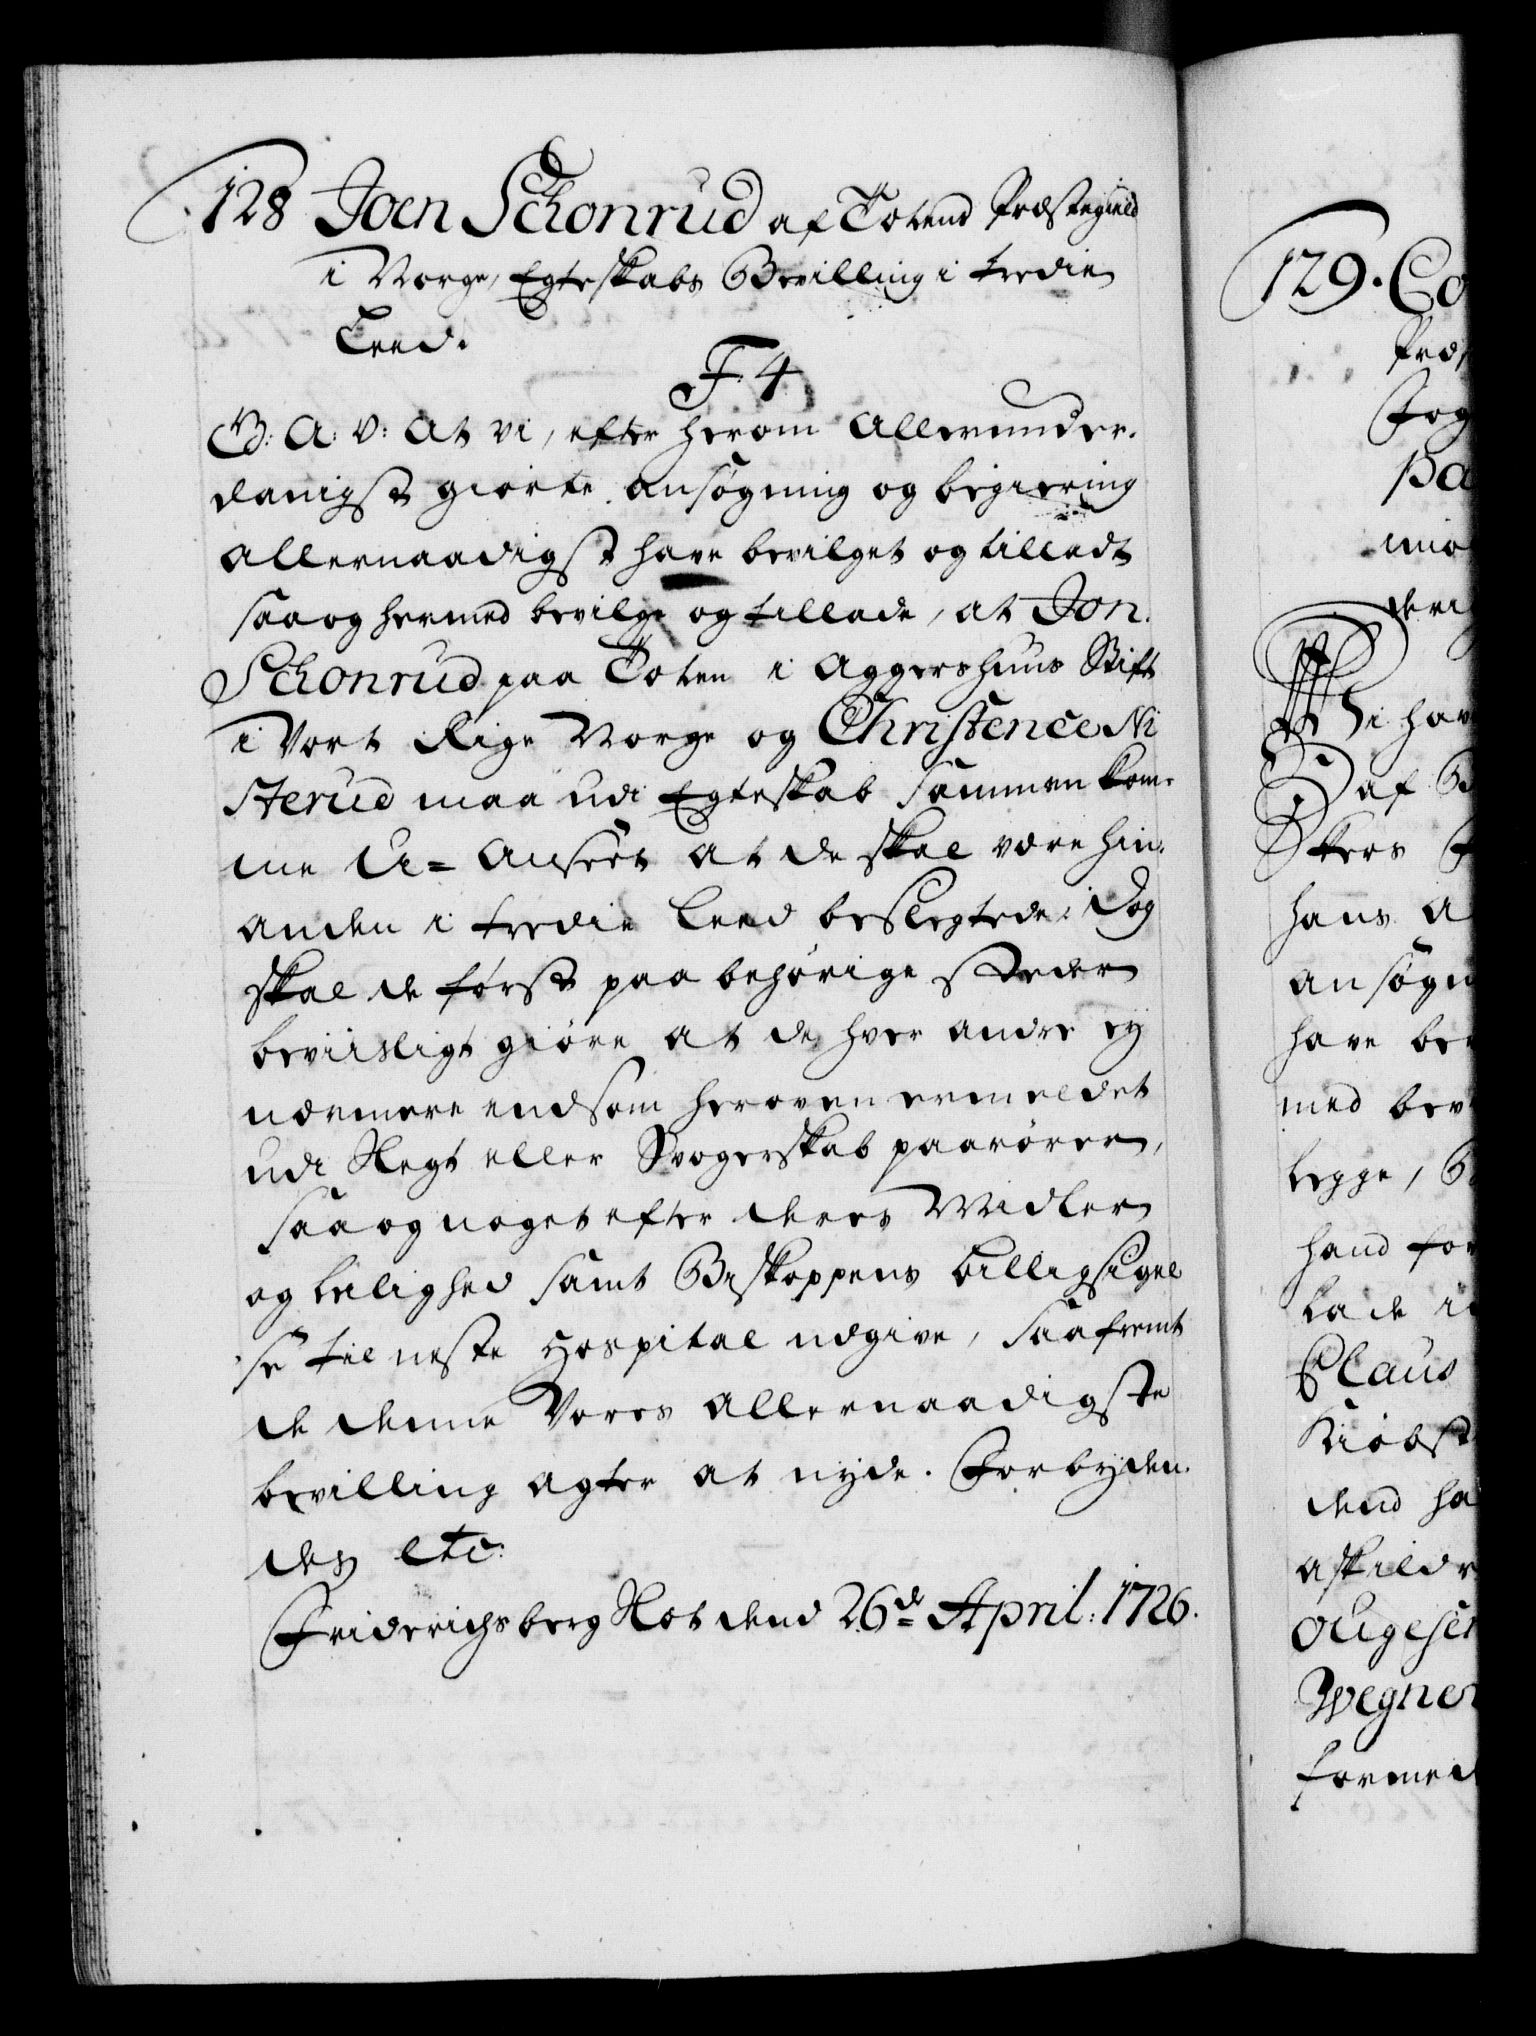 128 Joen Schonrud af Totens Præstegield
i Norge, Egteskabs Bevilling i tredie
Leed.
F. 4
G: A: V: At vi, efter herom allerunder-
danigst giorte ansøgning og begiering
allernaadigst have bevilget og tilladt
saa og hermed bevilge og tillade, at Jon
Schonrud paa Toten i Aggershuus Stift
i Vort Rige Norge og Christence Ni
sterud maa udi Egteskab sammen kom-
me U-anseet at de skal være hin-
anden i tredie Leed beslegtede; Dog
skal de først paa behørige steder
beviisligt giøre at de hver andre ej
nærmere end som heroven ermeldet
udi Slegt eller Svogerskab paarører,
saa og noget efter deres Midler
og leilighed samt Biskoppens billigsigel
se til neste Hospital udgive, saafremt
de denne Vores allernaadigste
bevilling agter at nyde. Forbyden-
des etc:
Friderichsberg Slot dend 26de April: 1726.
129. Co
Præs
Fog
pa
Vi hav
af B
kers F
hans a
ansøgn
have bev
med bev
legge, B
hand for
lade i
Claus
Kiøbst
dend ha
askildr
ougeser
Wegner
formed